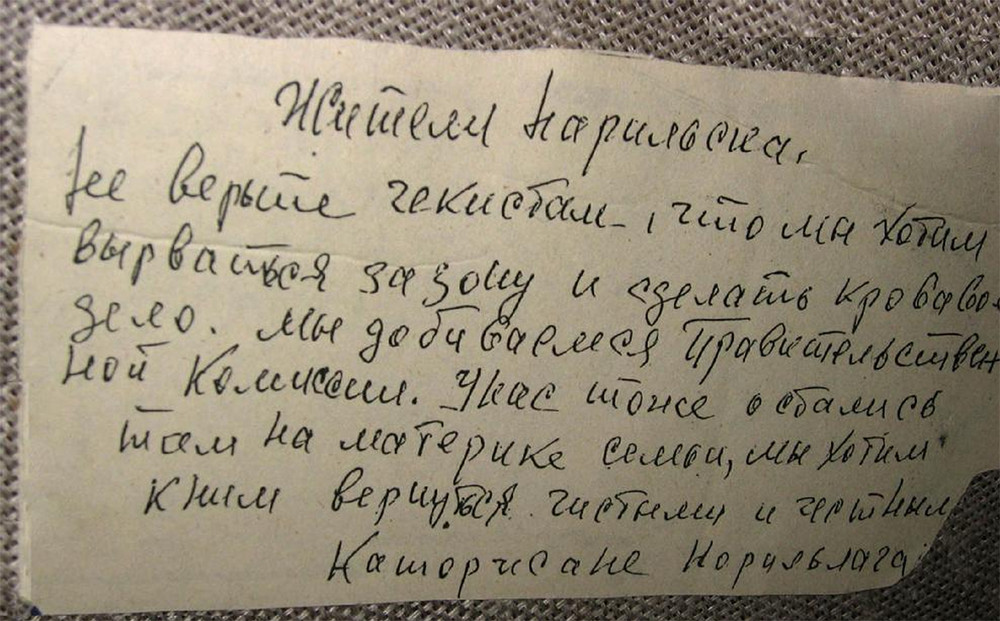 Жители Нарильска,
Не верьте чекистам, что мы хотим
вырваться за зону и сделать кроваво
дело. Мы добиваемся Правительствен
ной Комиссии. Унас тоже остались
там на материке семьи, мы хотим
кним вернуться чистыми и честным
Каторжане Норильлага